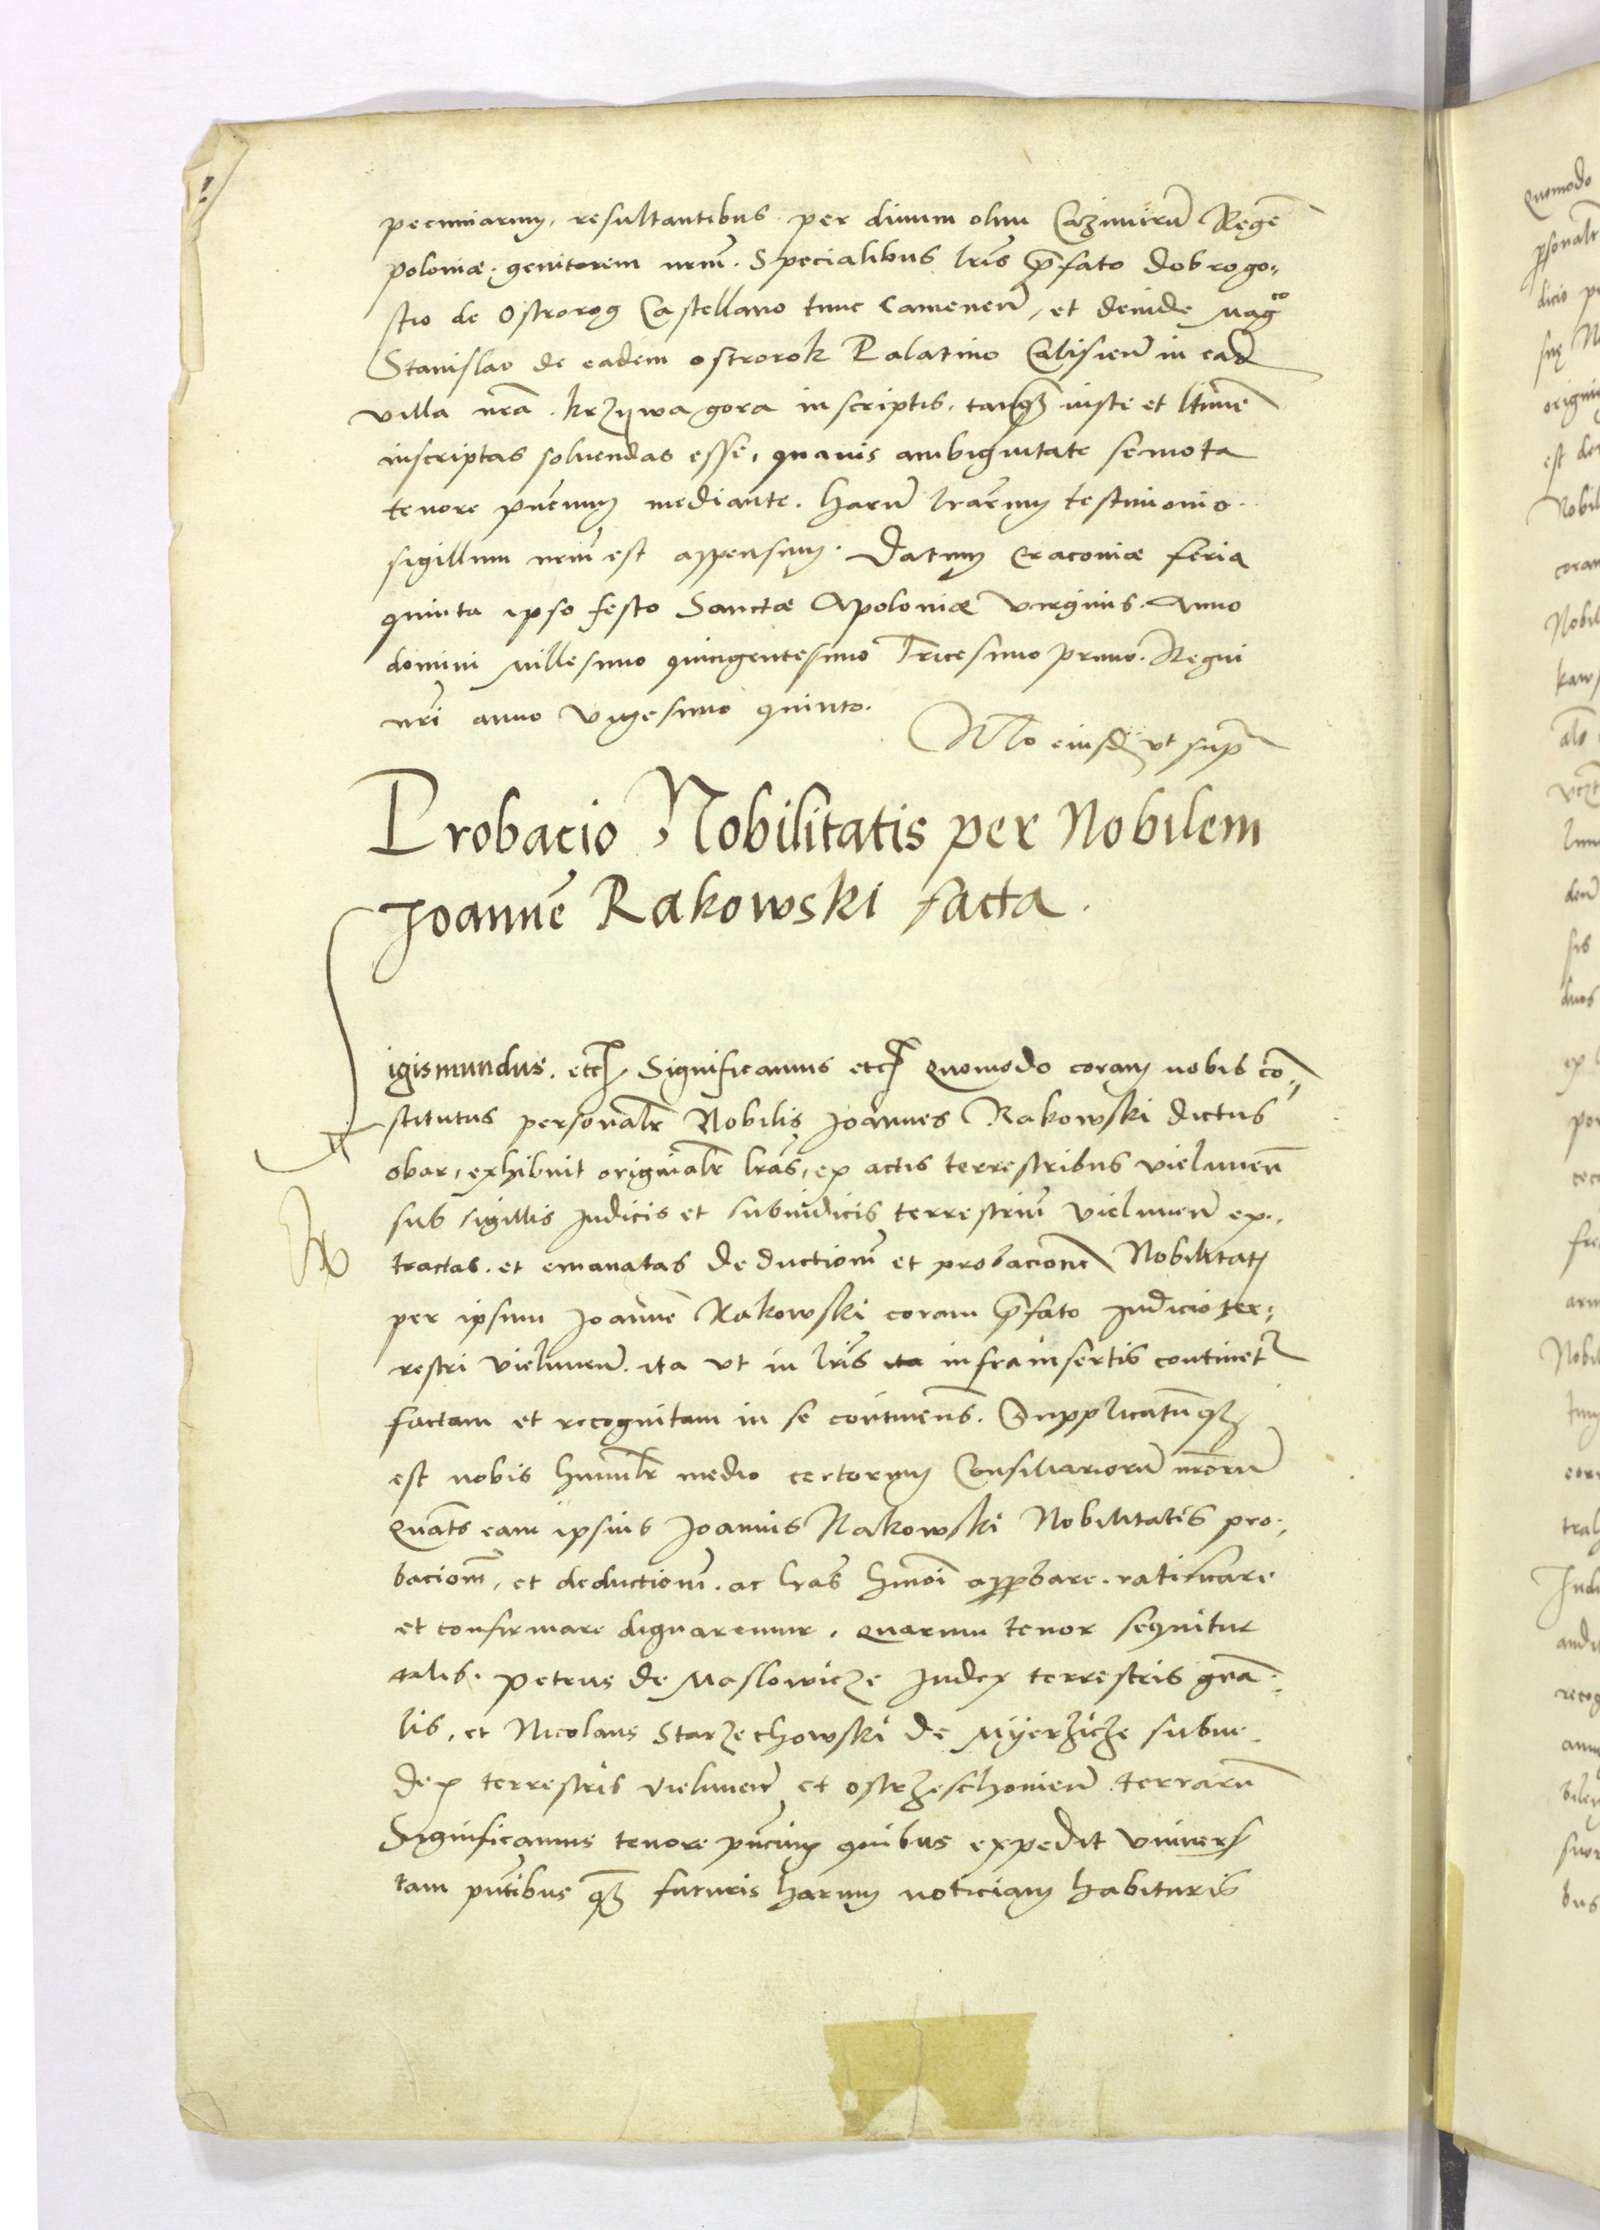 pecuniarum, resultantibus per divum olim Cazimirū Regē
poloniæ, genitorem nrm̄. Specialibus lris̄ p̄fato Dobrogo=
stio de Ostrorog Castellano tunc Camenen̄, et deinde Magco
Stanislao de eadem ostrorok Palatino Calisien̄ in ead
villa nrā. krzywa gora inscriptis, tanq̄ȝ iuste et ltimē
inscriptas soluendas esse, quauis ambiguitate semota
tenore pn̄cium mediante. Harū lrārum testimonio
sigillum nrm̄ est appensum. Datum Craconiæ feria
quinta ipso festo Sanctæ Apoloniæ virginis. Anno
domini millesimo quingentesimo Tricesimo primo. Regni
nrī anno vigesimo quinto.
Rlo eiusd ut sup
Probacio Nobilitatis per Nobilem
Joannē Rakowski facta.
Sigismundus. etc Significamus etc Quomodo coram nobis cō=
stitutus personalr Nobilis Joannes Rakowski dictus
obar, exhibuit originalr lrās, ex actis terrestribus vielunen̄
sub sigillis Judicis et subiudicis terrestriū vielunen̄ ex=
tractas. et emanatas deductionē et probacionē Nobilitatis
per ipsum Joannē Rakowski coram p̄fato Judicio ter=
restri vielunen̄. ita ut in lris̄ ita infrainsertis continetr
factam et recognitam in se continen̄s. Supplicatūqȝ
est nobis humilr medio certorum Consiliariorū nrōrū
Quats̄ eam ipsius Joannis Rakowski Nobilitatis pro=
bacionē, et deductionē. ac lrās hmōi approbare. ratificare
et confirmare dignaremur. quarum tenor sequitur
talis. Petrus de Maslowicze Judex terrestris gnā=
lis, et Nicolaus Starzechowski de Myerzicze subiu=
dex terrestris vielunen̄ et ostrzeschouien̄ terrarū
Significamus tenore pn̄cium quibus expedit vniuers
tam pn̄tibus qȝ futuris harum noticiam habituris